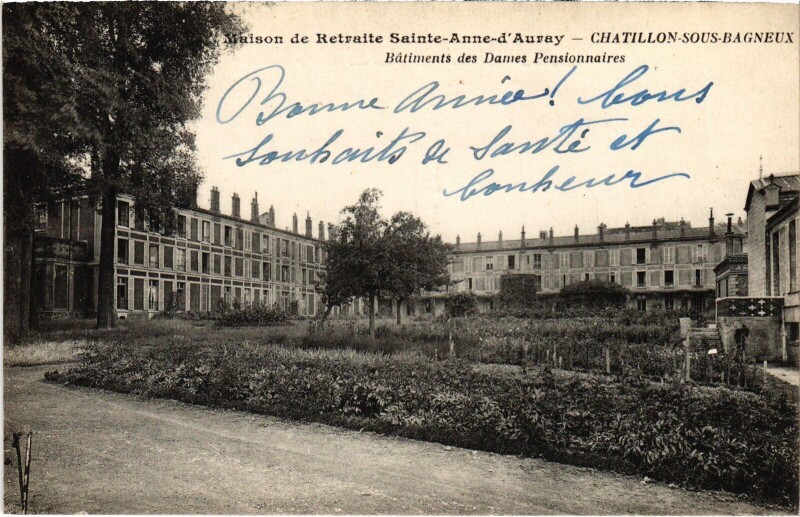 Maison de Retraite Sainte-Anne-d'Auray — CHATILLON-SOUS-BAGNEUX
Bâtiments des Dames Pensionnaires
Bonne Année! bons
Souhaits de Santé et
bonheur